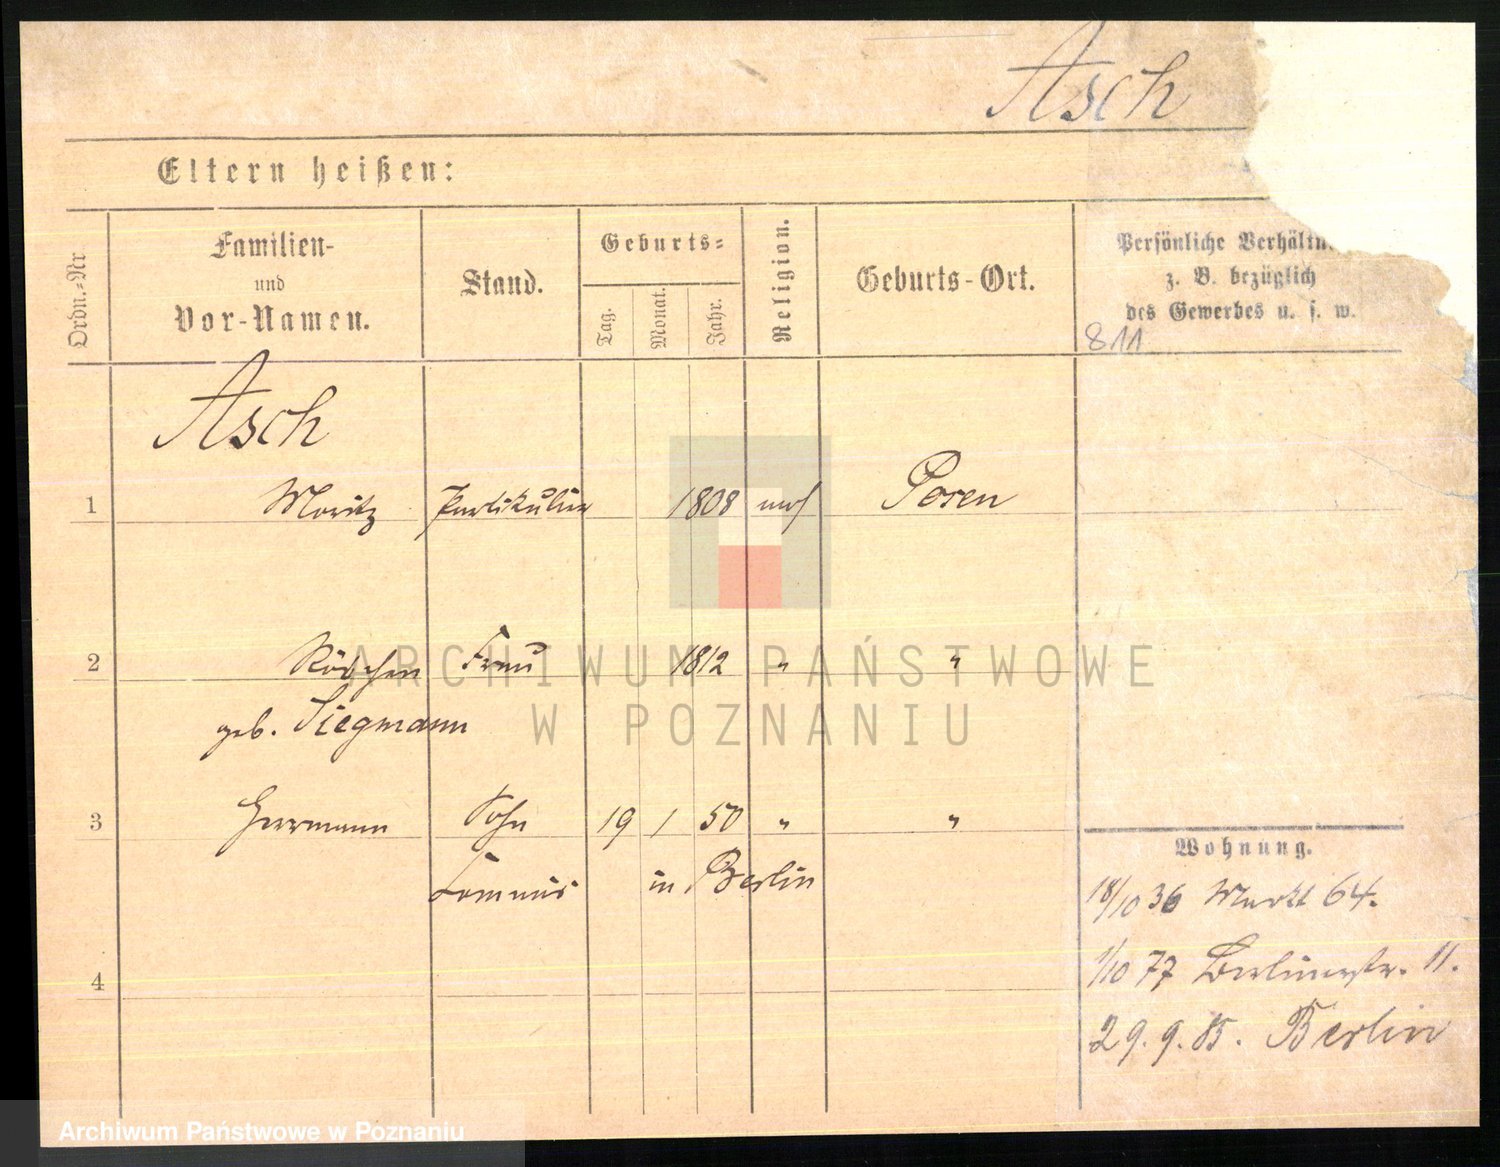 Asch
Eltern heißen:
Ordn.=Nr
Familien-
und
Vor-Namen.
Stand.
Geburts=
Tag.
Monat.
Jahr.
Religion.
Geburts-Ort.
Persönliche Verhältn
z. B. bezüglich
des Gewerbes u. s. w.
811
Asch
1 Moritz Partikulier 1808 mos Posen
2 Röschen Frau 1812 " "
geb. Siegmann
3 Herrmann Sohn 19 1 50 " "
in Berlin
4
Wohnung.
18/10 36 Markt 64.
1/10 77 Berlinerstr. 11.
29. 9. 85. Berlin
ARCHIWUM PAŃSTWOWE
W POZNANIU
Archiwum Państwowe w Poznaniu